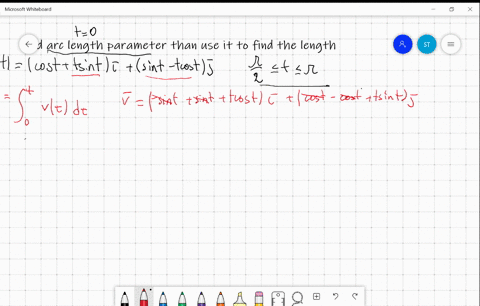 Microsoft Whiteboard
t=0
d arc length parameter than use it to find the length
t) = (cost + tsint) i̅ + (sint - tcost) j̅ π/2 ≤ t ≤ π
= ∫₀ᵗ v(τ) dτ v̅ = (-sint + sint + tcost) i̅ + (cost - cost + tsint) j̅
ST